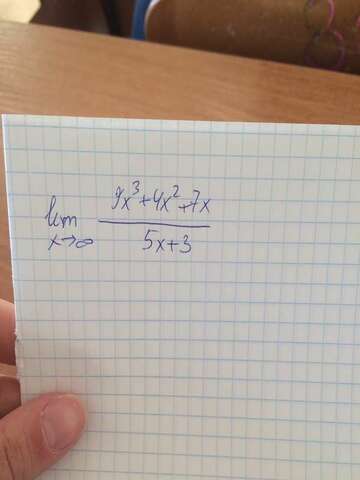 lim x→∞ (9x³+4x²+7x)/(5x+3)